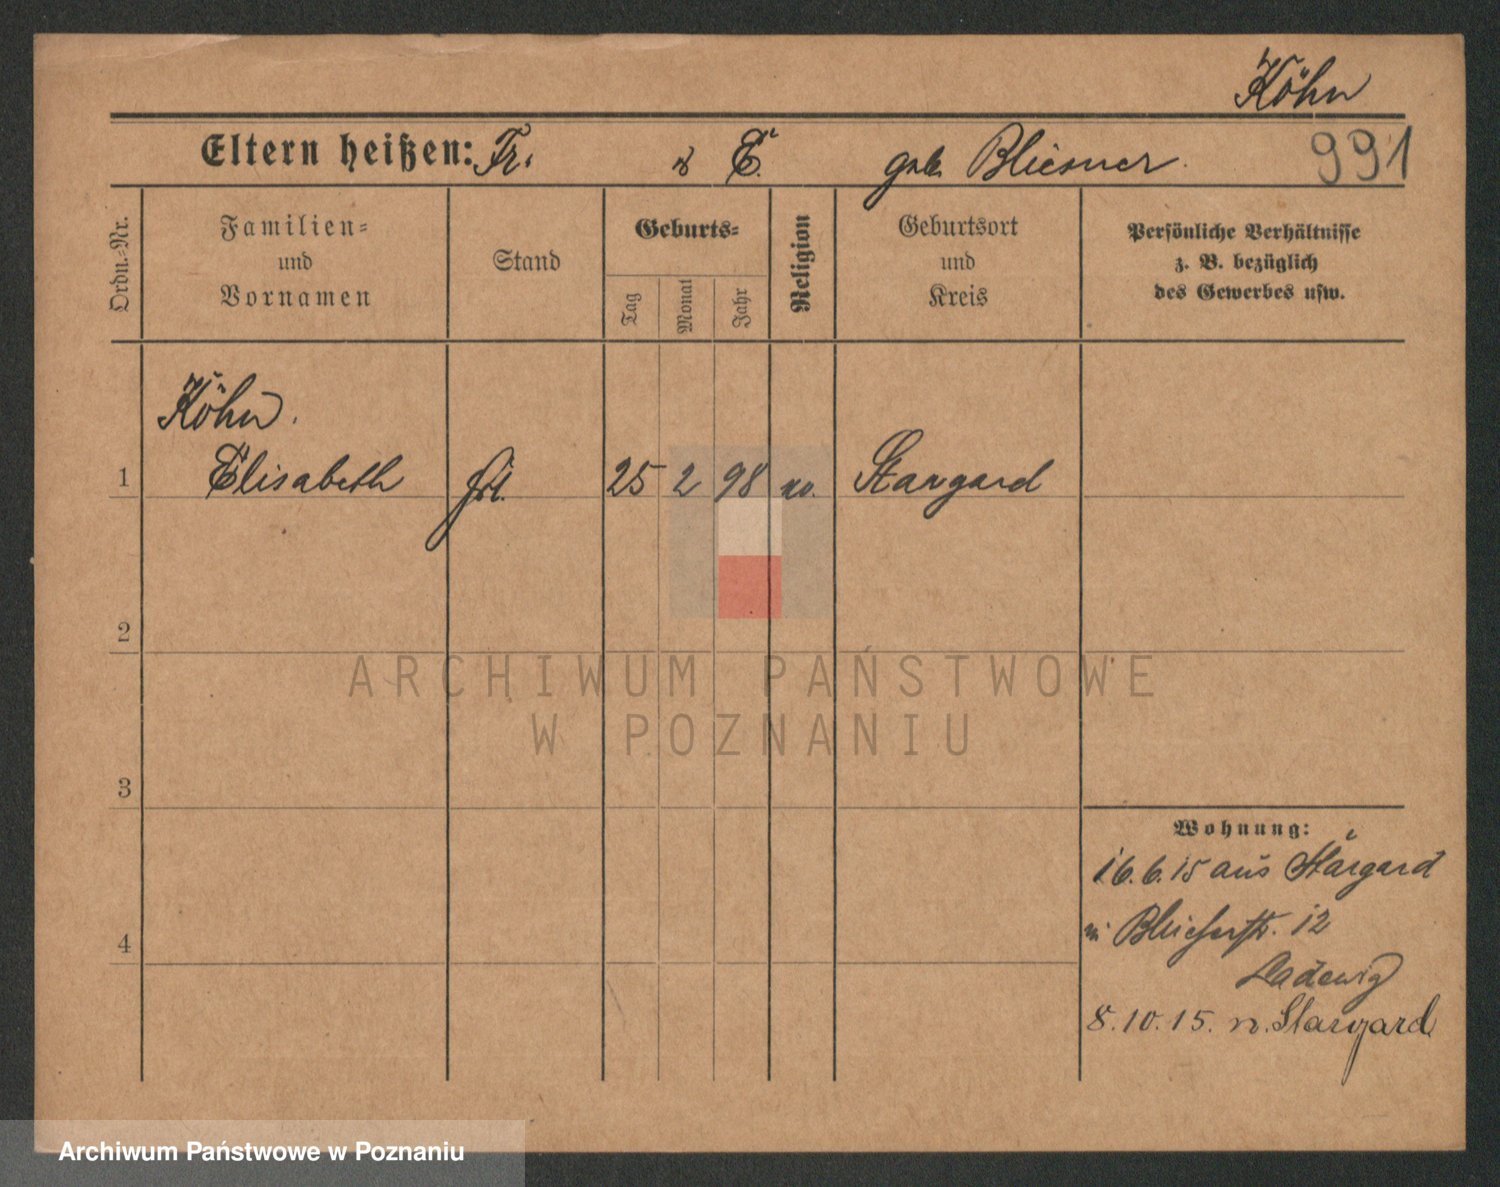 Köhn
Eltern heißen: Fr. u E. geb. Bliesner. 991
Ordn.-Nr.
Familien-
und
Vornamen
Stand
Geburts-
Tag
Monat
Jahr
Religion
Geburtsort
und
Kreis
Persönliche Verhältnisse
z. B. bezüglich
des Gewerbes usw.
Köhn.
1 Elisabeth frl. 25 2 98 Stargard
2
ARCHIWUM PAŃSTWOWE
W POZNANIU
3
Wohnung:
16.6.15 aus Stargard
4 Blücherstr. 12
Ladewig
8.10.15. n. Stargard
Archiwum Państwowe w Poznaniu